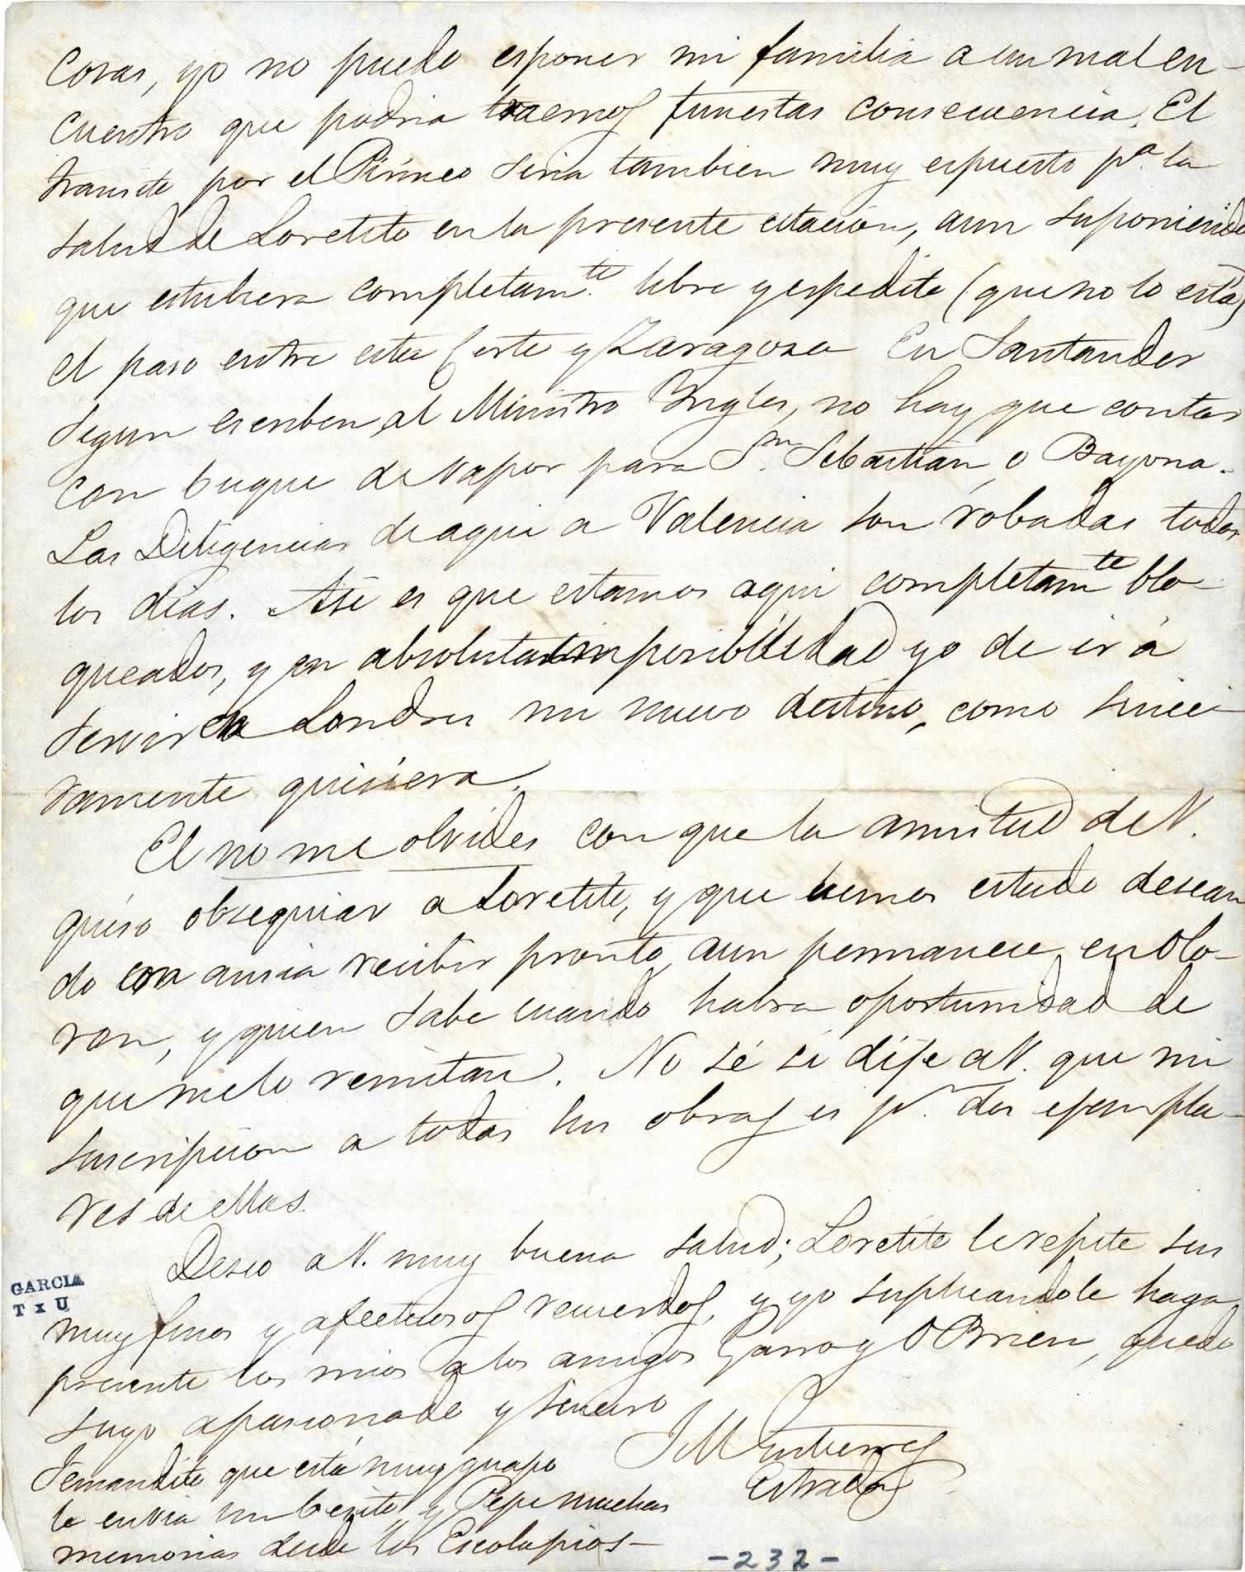 Cosas, yo no puedo esponer mi familia a un mal en-
cuentro que podria traernos funestas consecuencia. El
transito por el Pirineo seria tambien muy espuesto pa. la
salud de Loretito en la presente estacion, aun suponiendo
que estubiera completamte. libre y espedito (que no lo está)
el paso entre esta Corte y Zaragoza En Santander
segun escriben al Ministro Ingles, no hay que contar
con buque de vapor para Sn. Sebastian, o Bayona.
Las Diligencias de aqui a Valencia son robadas todos
los dias. Asi es que estamos aqui completamte blo-
queados, y en absoluta imposibilidad yo de ir á
servir en Londres mi nuevo destino, como since
ramente quisiera.
El no me olvides con que la amistad de V.
quiso obsequiar a Loretito, y que hemos estado desean
do con ansia recibir pronto, aun permanece en Olo-
ron, y quien sabe cuando habra oportunidad de
que me lo remitan. No sé si dije a V. que mi
suscripcion a todas sus obras es pr. dos ejempla-
res de ellas.
Deseo a V. muy buena salud; Loretito le repite sus
GARCIA
T x U
muy finos y afectuosos recuerdos, y yo suplicandole haga
presente los mios a los amigos Garro y O Brien, quedo
suyo apasionado y sincero
J M Gutierrez
Estrada
Fernandito que está muy guapo
le envia un besito, y Pepe muchas
memorias desde los Escolapios-
-232-